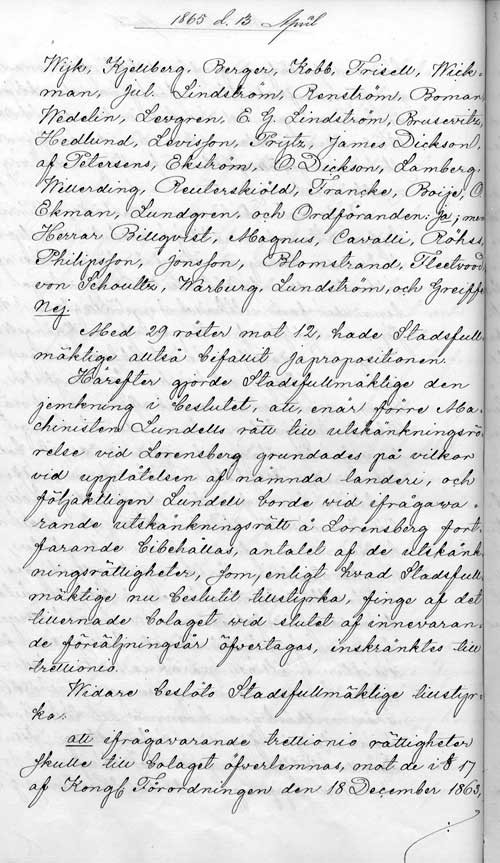 1865 d. 13 April
Wijk, Kjellberg, Berger, Kobb, Frisell, Wick-
man, Jul. Lindström, Renström, Boman,
Wedelin, Levgren, E. G. Lindström, Brusevitz,
Hedlund, Levisson, Prytz, James Dickson,
af Petersens, Ekström, O. Dickson, Lamberg,
Willerding, Reuterskiöld, Francke, Boije, O
Ekman, Lundgren, och Ordföranden: Ja; men
Herrar Billqvist, Magnus, Cavalli, Röhss,
Philipsson, Jonsson, Blomstrand, Fleetwood,
von Schoultz, Warburg, Lundström, och Greiffe
Nej.
Med 29 röster mot 12, hade Stadsfull-
mäktige alltså bifallit japropositionen.
Härefter gjorde Stadsfullmäktige den
jemkning i beslutet, att, enär förre Ma-
chinisten Lundells rätt till utskänkningsrö-
relse vid Lorensberg grundades på vilkor
vid upplåtelsen af nämnda landeri, och
följaktligen Lundell borde wid ifrågawa-
rande utskänkningsrätt å Lorensberg fort-
farande bibehållas, antalet af de utskänk-
ningsrättigheter, som, enligt hvad Stadsfull-
mäktige nu beslutit tillstyrka, finge af det
tillernade bolaget wid slutet af innevaran-
de försäljningsår öfvertagas, inskränktes till
trettionio.
Widare beslöto Stadsfullmäktige tillstyr-
ka:
att ifrågavarande trettionio rättigheter
skulle till bolaget öfverlemnas, mot de i § 17
af Kongl. Förordningen den 18 December 1863,